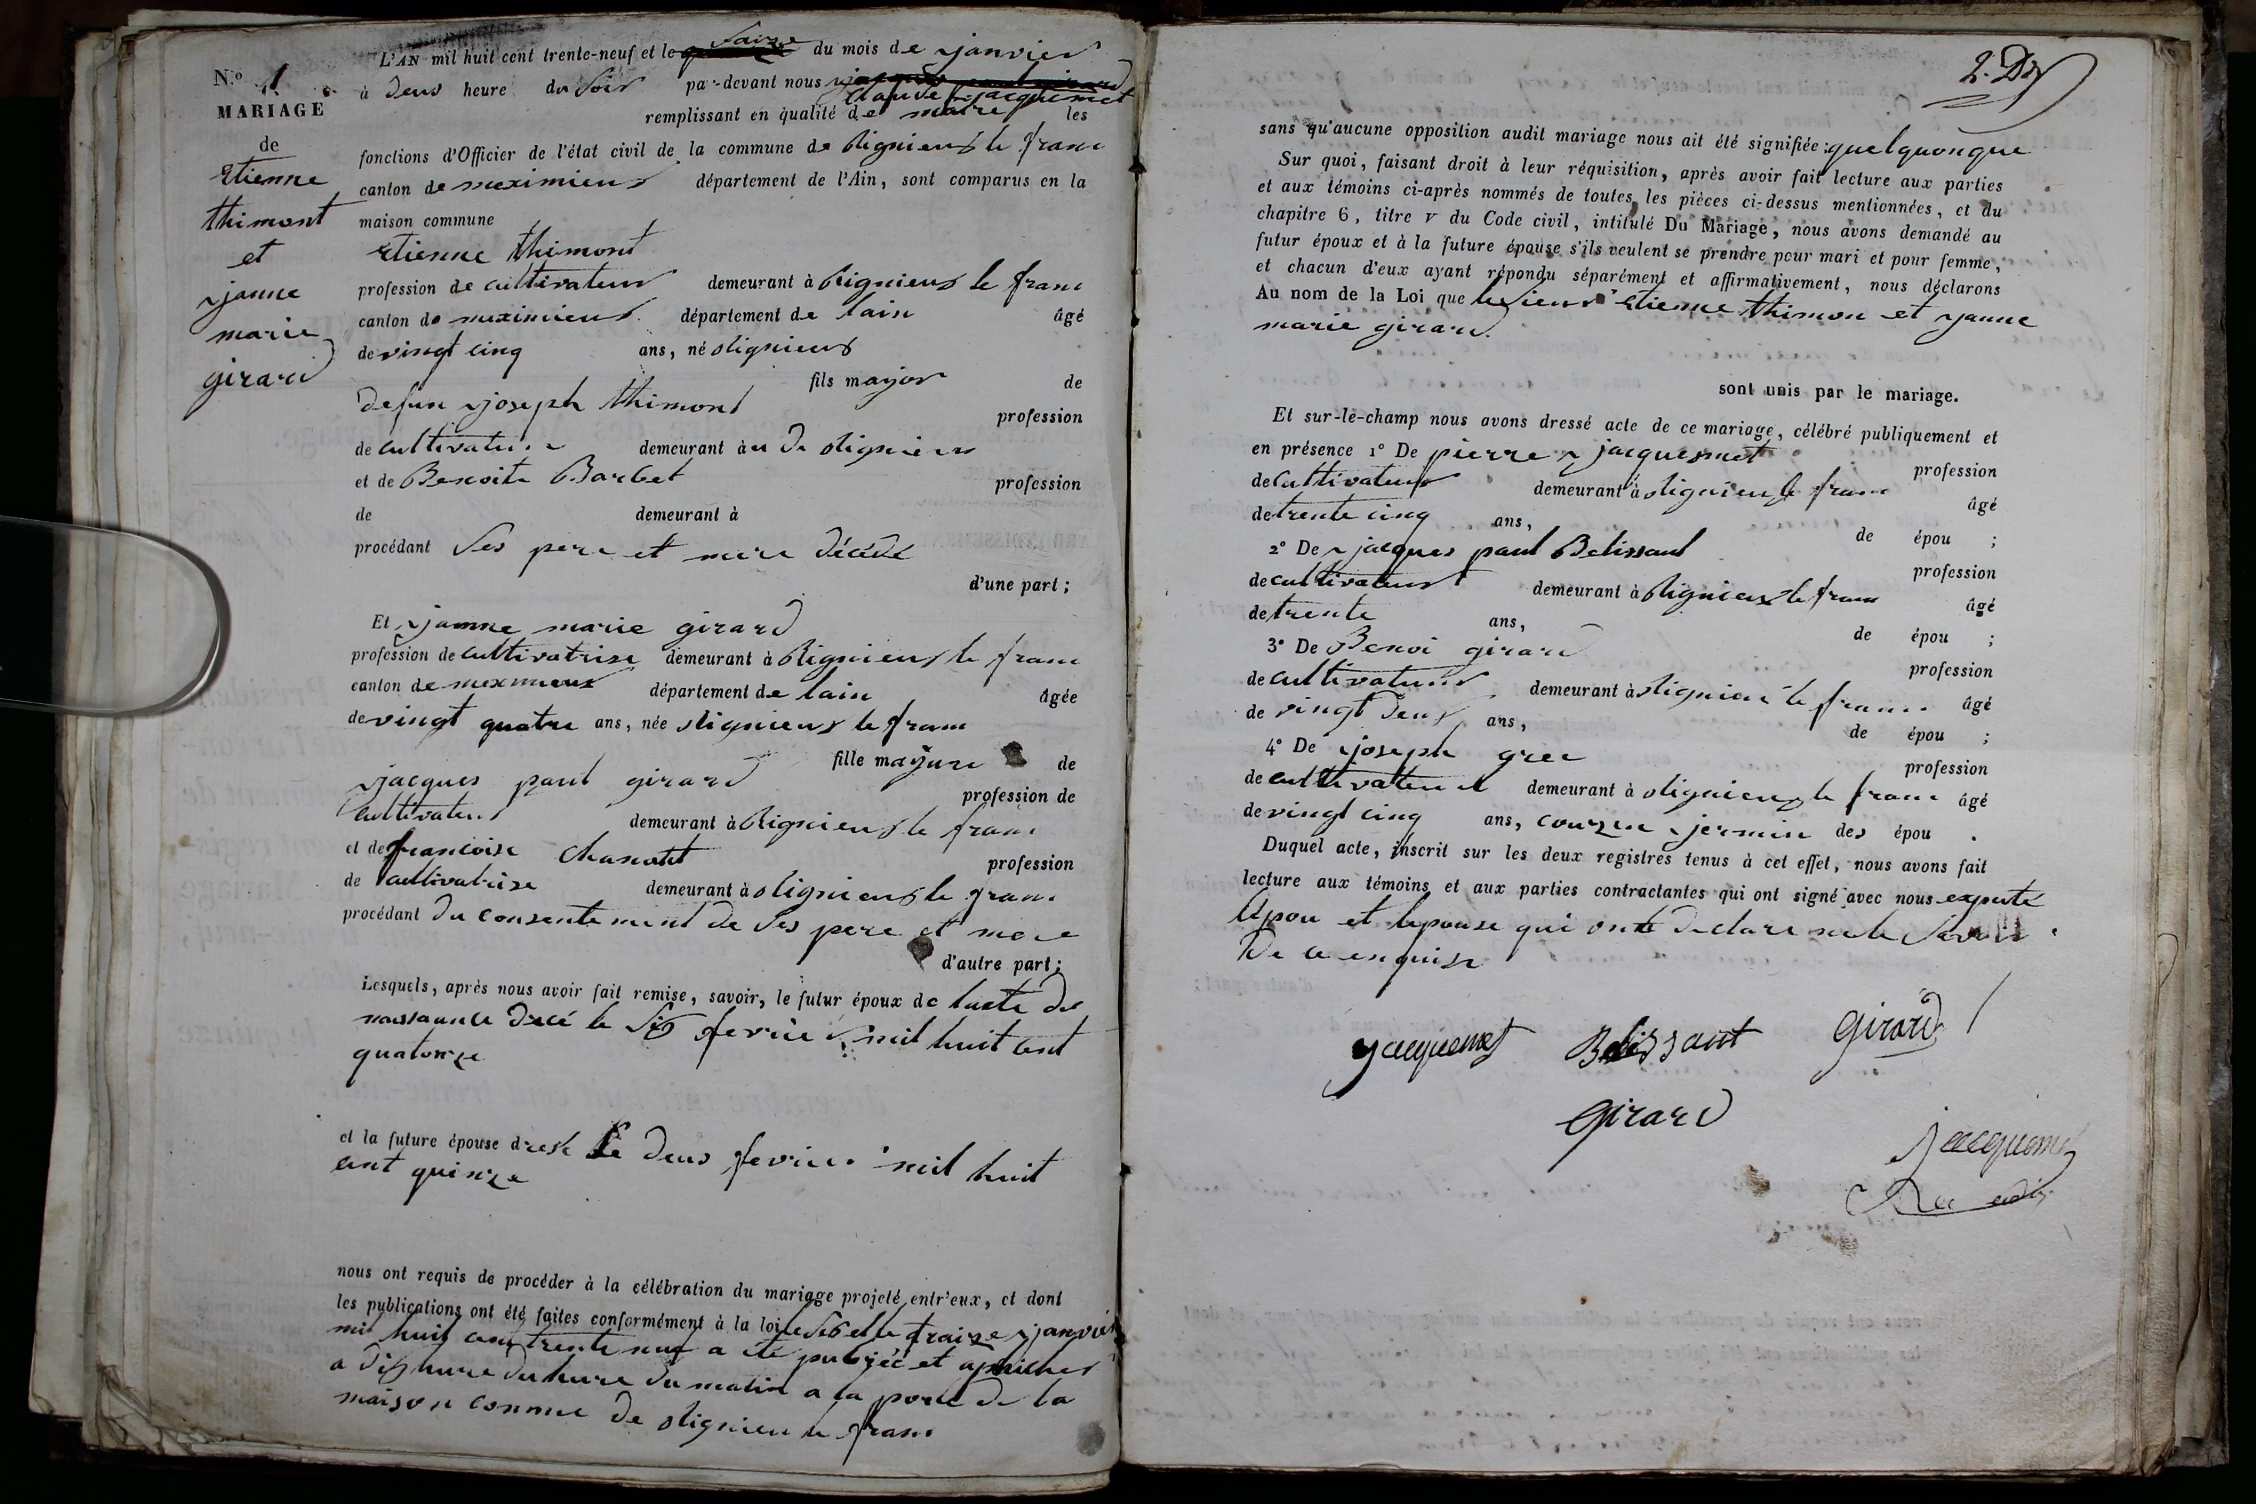 N.o 1
MARIAGE
de
Etienne
thimont
et
janne
marie
girard
L'AN mil huit cent trente-neuf et le saize du mois de janvier
à deus heure du soir par-devant nous
claude jacquemet
remplissant en qualité de maire les
fonctions d'Officier de l'état civil de la commune de Rignieus le franc
canton de meximieus département de l'Ain, sont comparus en la
maison commune
Etienne thimont
profession de cultivateur demeurant à Rignieus le franc
canton de meximieus département de lain âgé
de vingt cinq ans, né Rignieus
fils mayor de
defun joseph thimont profession
de cultivateur demeurant à Rignieus
et de Benoite Barbet profession
de demeurant à
procédant ses pere et mere décédé
d'une part;
Et janne marie girard
profession de cultivatrise demeurant à Rignieus le franc
canton de meximieus département de lain âgée
de vingt quatre ans, née Rignieus le franc
fille mayure de
jacques paul girard profession de
cultivateur demeurant à Rignieus le franc
et de francoise profession
de cultivatrise demeurant à Rignieus le franc
procédant du consentement de ses pere et mere
d'autre part;
Lesquels, après nous avoir fait remise, savoir, le futur époux de lacte de
naissance le six fevrier mil huit cent
quatorze
et la future épouse le deus fevrier mil huit
cent quinze
nous ont requis de procéder à la célébration du mariage projeté entr'eux, et dont
les publications ont été faites conformément à la loi le six et le traize janvier
mil huit cent trente nuf a été publiée et
a dix hure du matin a la porte de la
maison comme de Rignieu le franc
2.
sans qu'aucune opposition audit mariage nous ait été signifiée: quelquonque
Sur quoi, faisant droit à leur réquisition, après avoir fait lecture aux parties
et aux témoins ci-après nommés de toutes les pièces ci-dessus mentionnées, et du
chapitre 6, titre v du Code civil, intitulé Du Mariage, nous avons demandé au
futur époux et à la future épouse s'ils veulent se prendre pour mari et pour femme,
et chacun d'eux ayant répondu séparément et affirmativement, nous déclarons
Au nom de la Loi que le sieur Etienne thimon et janne
marie girard
sont unis par le mariage.
Et sur-le-champ nous avons dressé acte de ce mariage, célébré publiquement et
en présence 1° De pierre jacquemet profession
de cultivateur demeurant à Rignieu le franc âgé
de trente cinq ans, de épou ;
2° De jacques paul Belissant profession
de cultivateur demeurant à Rignieux le franc âgé
de trente ans, de épou ;
3° De Benoi girard profession
de cultivateur demeurant à Rignieu le franc âgé
de vingt deus ans, de épou ;
4° De joseph profession
de cultivateur demeurant à Rignieus le franc âgé
de vingt cinq ans, couzin jermin des épou .
Duquel acte, inscrit sur les deux registres tenus à cet effet, nous avons fait
lecture aux témoins et aux parties contractantes qui ont signé avec nous
lépou et lepouse qui ont declare ne le savoir
De ce enquis
Jacquemet Belissant Girard
Girard
Jacquemet